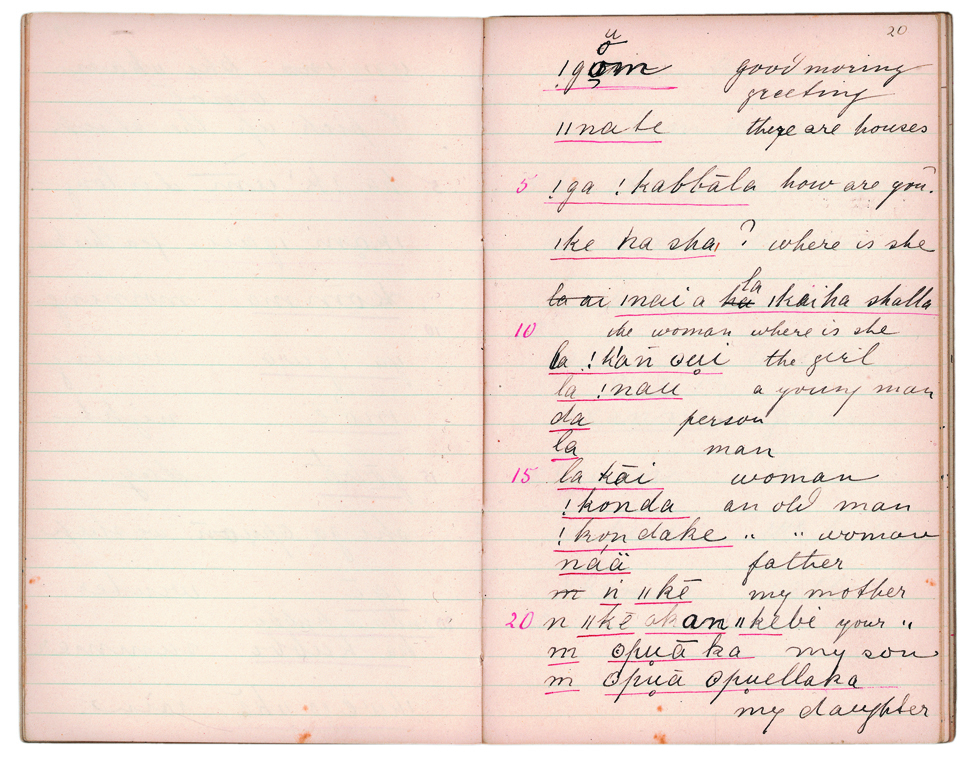 20
!gõm good morning
greeting
ǁnate there are houses
5 !ga !kabbāla how are you?
ǀke ha sha ? where is she
la
la ai ǀnai a ha ǀkaiha shalla
10 the woman where is she
la !kan̄ ʘui the girl
la !nau a young man
da person
la man
15 la kāi woman
!konda an old man
!kondake " " woman
náä father
m ń ǁkē my mother
20 n ǁkē akan ǁkebi your "
m ʘpuā ka my son
m ʘpuā ʘpuellaka
my daughter